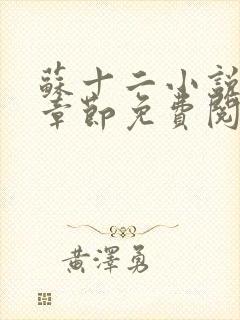 蘇十二小說
章節免費閱
黃澤勇